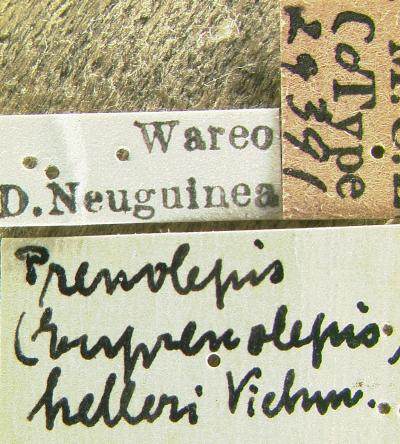 Wareo
D. Neuguinea
M.C.Z.
CoType
Prenolepis
(Euprenolepis)
helleri Viehm.